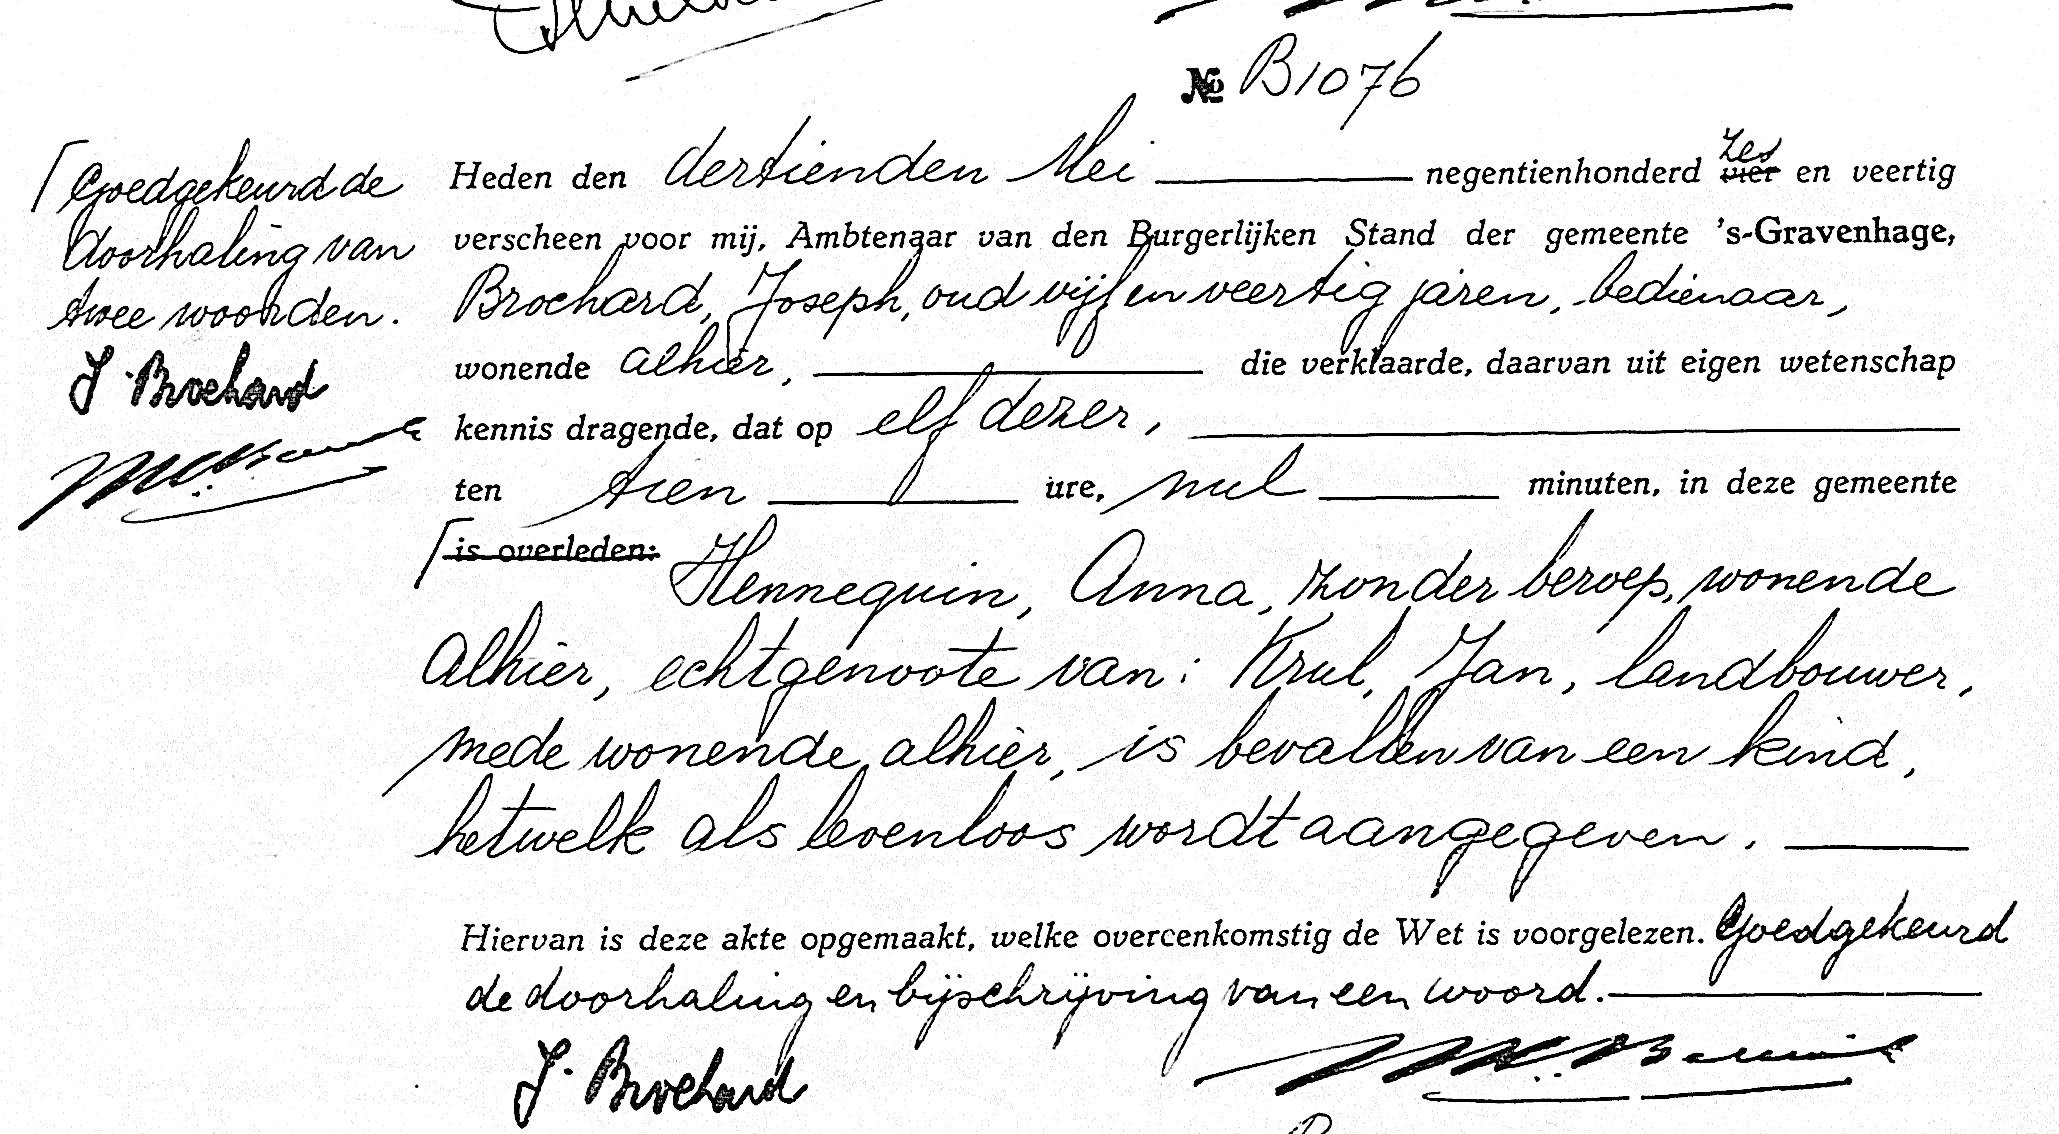 № B1076
Heden den dertienden Mei negentienhonderd vier zes en veertig
verscheen voor mij, Ambtenaar van den Burgerlijken Stand der gemeente 's-Gravenhage,
Brochard, Joseph, oud vijf en veertig jaren, bedienaar,
wonende alhier, die verklaarde, daarvan uit eigen wetenschap
kennis dragende, dat op elf dezer,
ten tien ure, nul minuten, in deze gemeente
is overleden: Hennequin, Anna, zonder beroep, wonende
alhier, echtgenoote van: Krul, Jan, landbouwer,
mede wonende alhier, is bevallen van een kind,
hetwelk als levenloos wordt aangegeven.
Hiervan is deze akte opgemaakt, welke overeenkomstig de Wet is voorgelezen. Goedgekeurd
de doorhaling en bijschrijving van een woord.
J. Brochard
Goedgekeurd de
doorhaling van
twee woorden.
J. Brochard